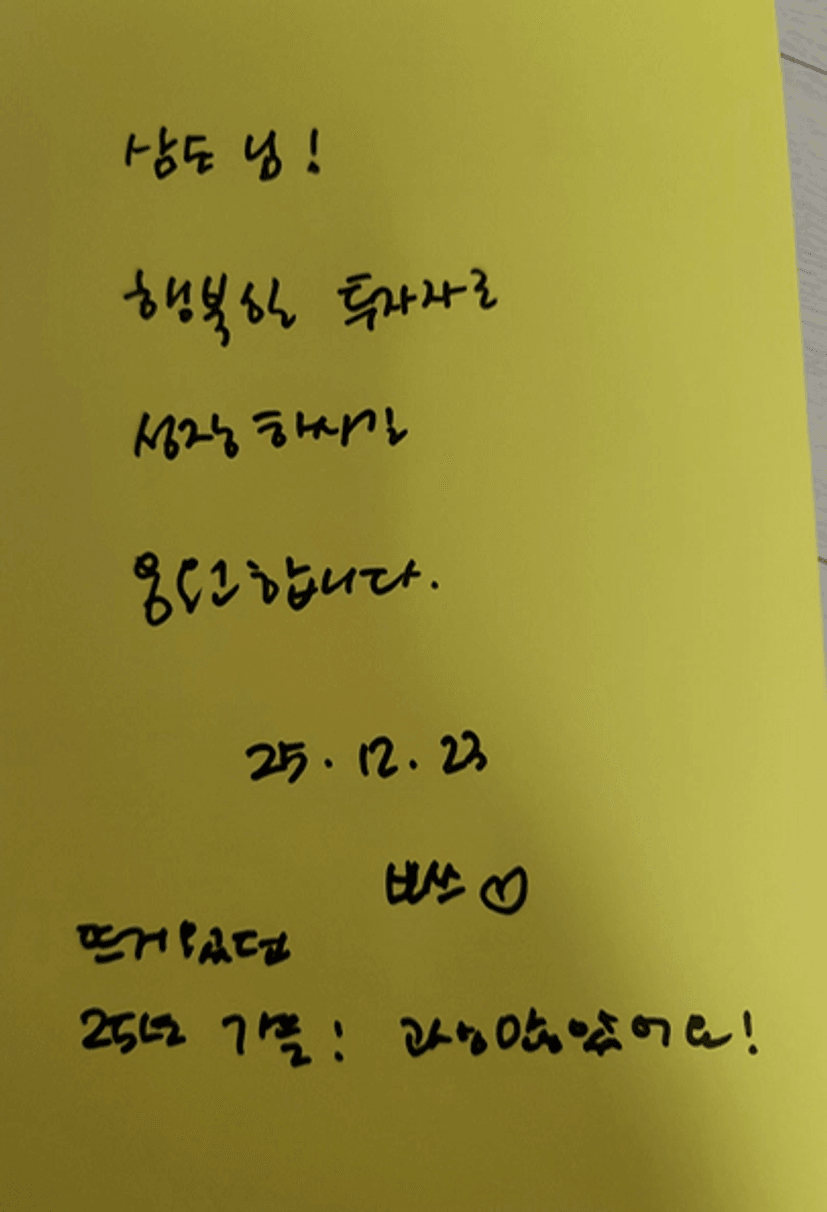 삼도 님!
행복한 투자자로
성장하시길
응원합니다.
25. 12. 23
뜨거웠던
25년 가을! 고생많았어요!